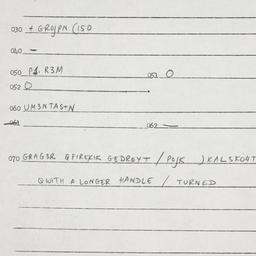 030 + GROJPN (150
040 —
050 P1. R3M 051 O
052 O
060 UM3NTAS+N
061 062 —
070 GRAG3R QFIREKIK G3DREYT / POJK ) KALSKO4T
QWITH A LONGER HANDLE / TURNED